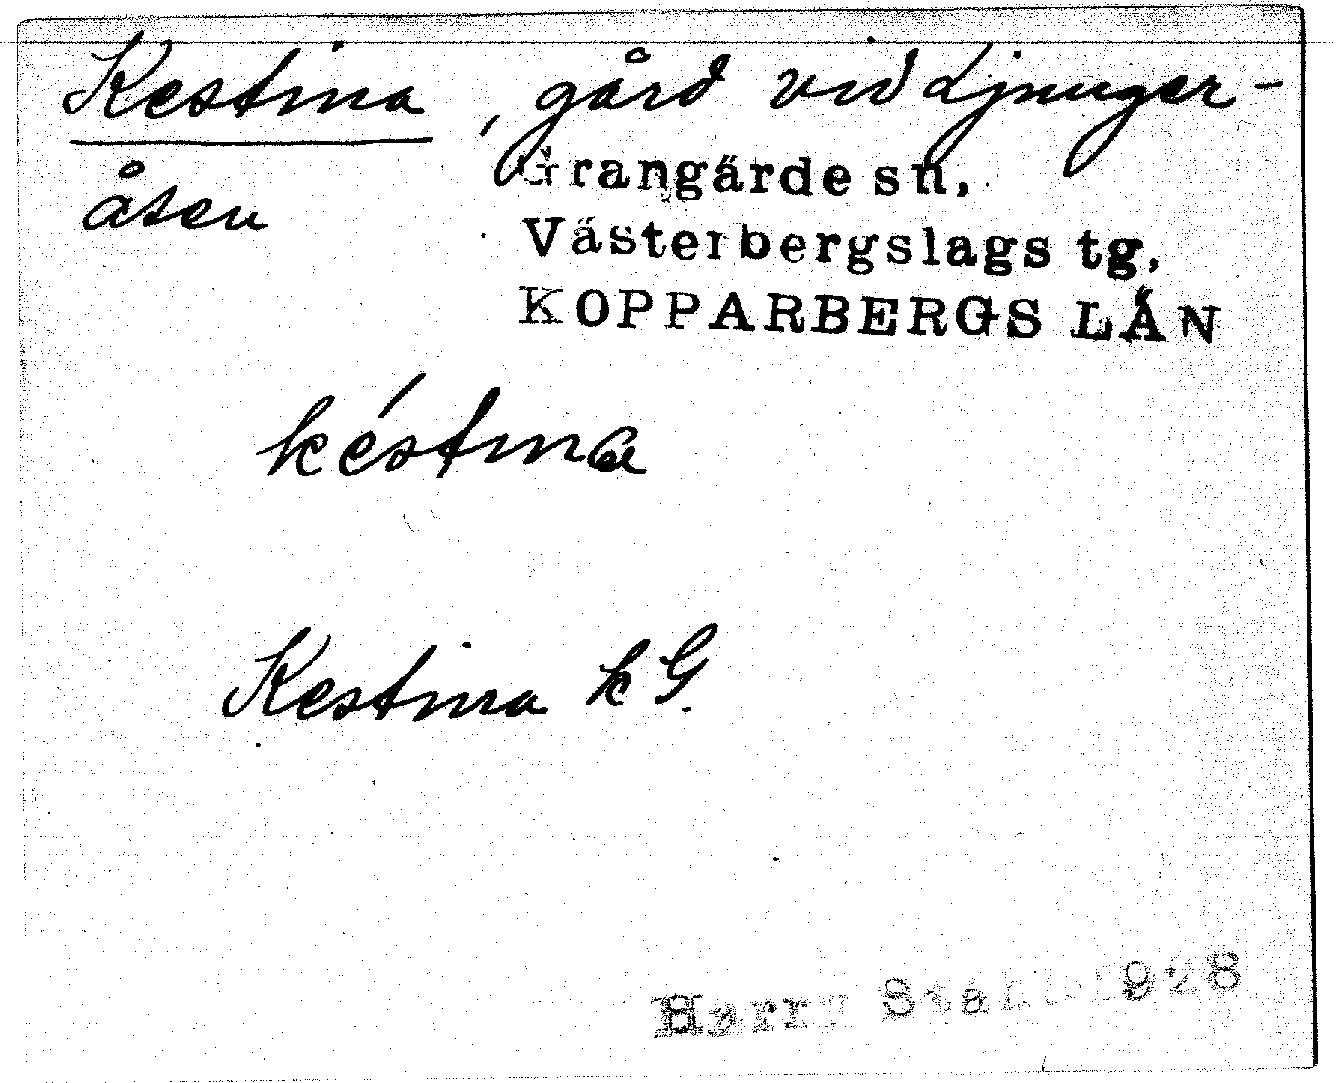 Kestina, gård vid Ljunger-
åsen
Grangärde sn,
Västerbergslags tg,
KOPPARBERGS LÄN
késtina
Kestina kG.
Harry Ståhl 1928